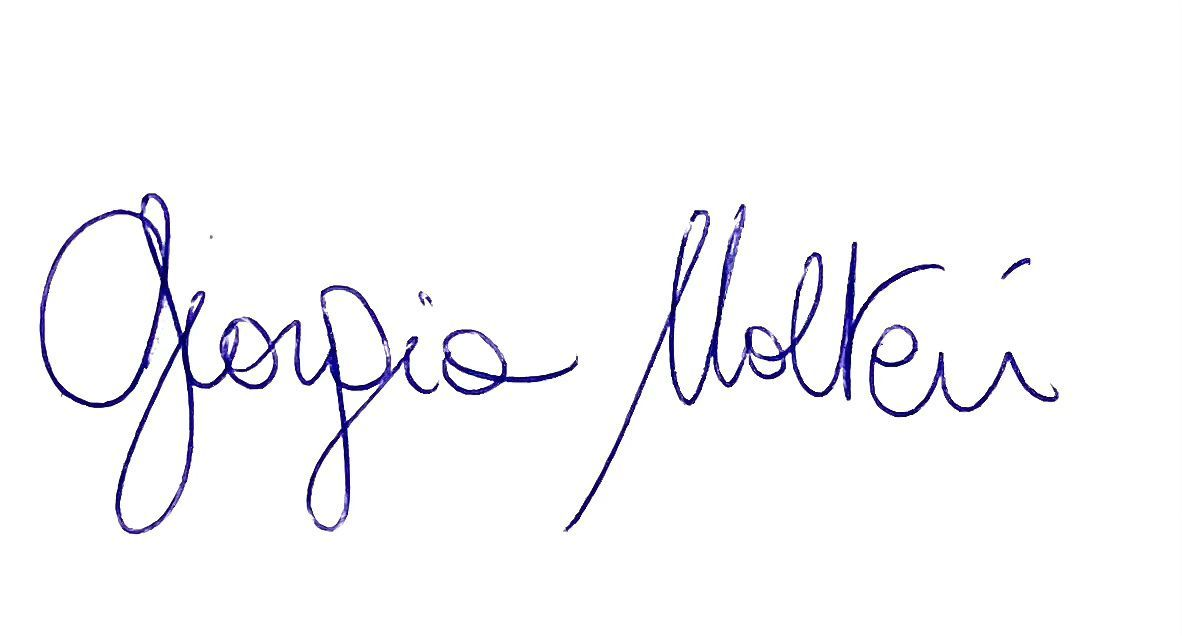 Giorgio Molteni